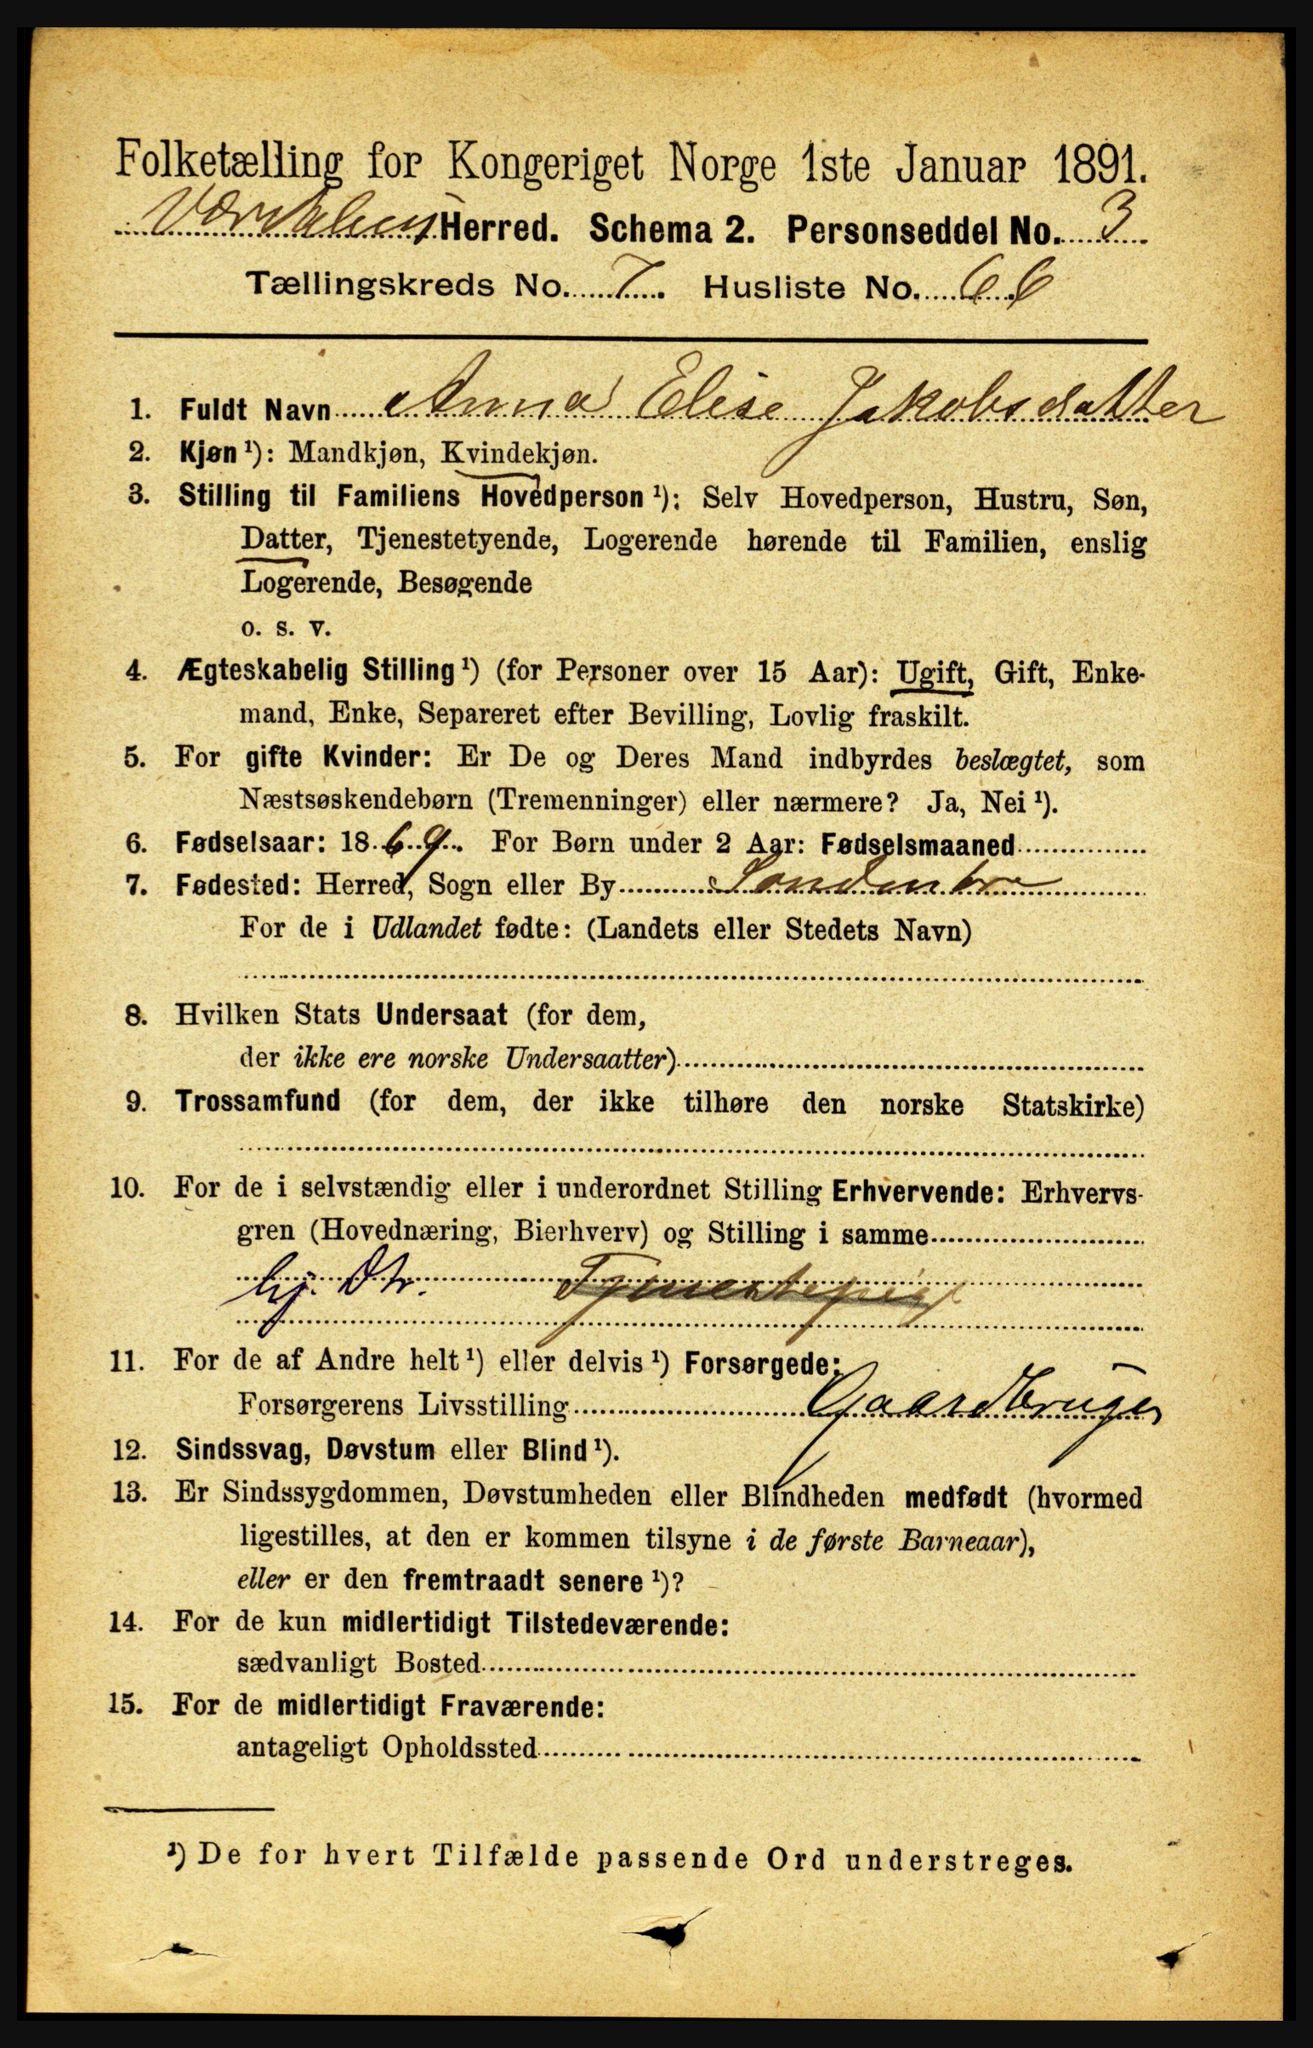 Folketælling for Kongeriget Norge 1ste Januar 1891.
Herred. Schema 2. Personseddel No. 3
Tællingskreds No. 7. Husliste No. 66
1. Fuldt Navn Anna Elise Jakobsdatter
2. Kjøn ¹): Mandkjøn, Kvindekjøn.
3. Stilling til Familiens Hovedperson ¹): Selv Hovedperson, Hustru, Søn,
Datter, Tjenestetyende, Logerende hørende til Familien, enslig
Logerende, Besøgende
o. s. v.
4. Ægteskabelig Stilling ¹) (for Personer over 15 Aar): Ugift, Gift, Enke-
mand, Enke, Separeret efter Bevilling, Lovlig fraskilt.
5. For gifte Kvinder: Er De og Deres Mand indbyrdes beslægtet, som
Næstsøskendebørn (Tremenninger) eller nærmere? Ja, Nei ¹).
6. Fødselsaar: 1869. For Børn under 2 Aar: Fødselsmaaned
7. Fødested: Herred, Sogn eller By
For de i Udlandet fødte: (Landets eller Stedets Navn)
8. Hvilken Stats Undersaat (for dem,
der ikke ere norske Undersaatter)
9. Trossamfund (for dem, der ikke tilhøre den norske Statskirke)
10. For de i selvstændig eller i underordnet Stilling Erhvervende: Erhvervs-
gren (Hovednæring, Bierhverv) og Stilling i samme
hj. Dtr. Tjenestepige
11. For de af Andre helt ¹) eller delvis ¹) Forsørgede:
Forsørgerens Livsstilling Gaardbruger
12. Sindssvag, Døvstum eller Blind ¹).
13. Er Sindssygdommen, Døvstumheden eller Blindheden medfødt (hvormed
ligestilles, at den er kommen tilsyne i de første Barneaar),
eller er den fremtraadt senere ¹)?
14. For de kun midlertidigt Tilstedeværende:
sædvanligt Bosted
15. For de midlertidigt Fraværende:
antageligt Opholdssted
¹) De for hvert Tilfælde passende Ord understreges.